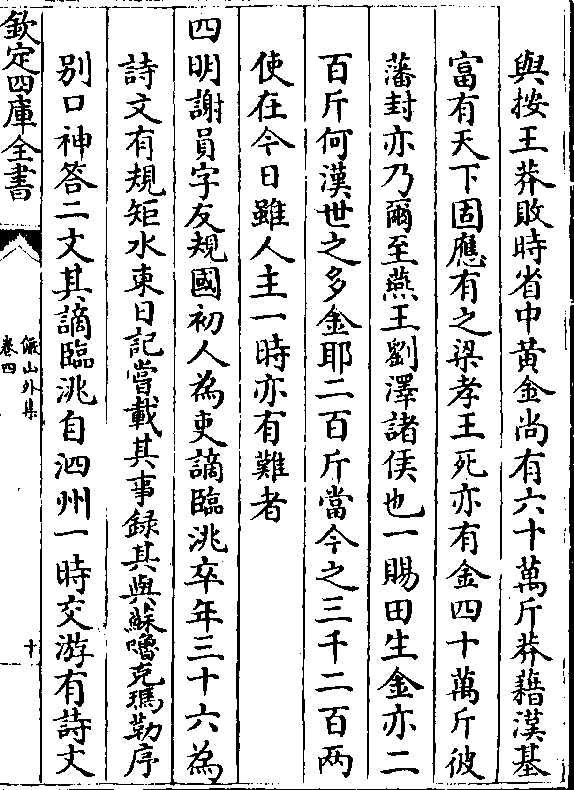 與按王莽敗時省中黄金尚有六十萬斤莽藉漢基
富有天下固應有之梁孝王死亦有金四十萬斤彼
藩封亦乃爾至燕王劉澤諸侯也一賜田生金亦二
百斤何漢世之多金耶二百斤當今之三千二百两
使在今日雖人主一時亦有難者
四明謝員字友規國初人為吏謫臨洮卒年三十六為
詩文有規矩水東日記嘗載其事録其與蘇嚕克瑪勒序
别口神答二文其謫臨洮自泗州一時交游有詩文
欽定四庫全書
儼山外集
卷四
十